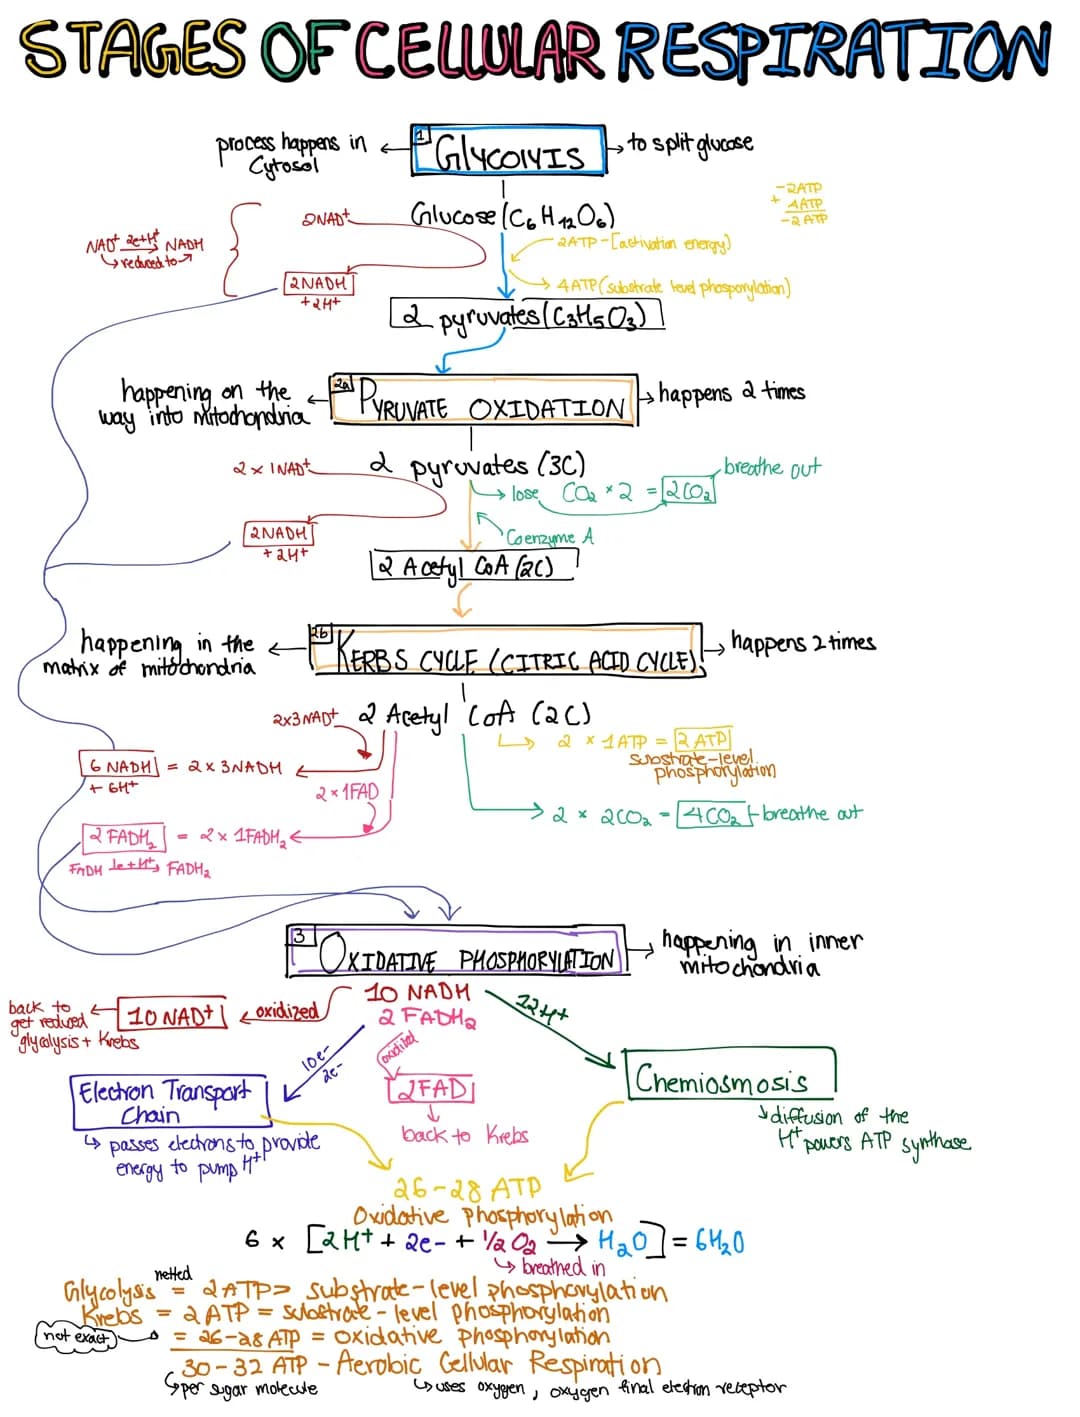 STAGES OF CELLULAR RESPIRATION
process happens in
Cytosol
1
GlycolyIS
to split glucose
-2ATP
+ 4ATP
-2 ATP
2NAD+
Glucose (C6H12O6)
NAD+ 2e+H+ NADH
reduced to
2ATP-[activation energy)
2NADH
+2H+
4ATP (substrate level phosporylation)
2 pyruvates (C3H5O3)
happening on the
way into mitochondria
2a
PYRUVATE OXIDATION
happens 2 times
2 x 1NAD+
2 pyruvates (3C)
breathe out
lose CO2 x 2 = 2CO2
2NADH
+ 2H+
Coenzyme A
2 Acetyl CoA (2C)
happening in the
matrix of mitochondria
2b
KERBS CYCLE (CITRIC ACID CYCLE)
happens 2 times
2x3NAD+
2 Acetyl CoA (2C)
2 x 1ATP = 2 ATP
substrate-level
phosphorylation
6 NADH = 2 x 3NADH
+ 6H+
2 x 1FAD
2 x 2CO2 = 4CO2 breathe out
2 FADH2 = 2 x 1FADH2
FADH 1e+H+ FADH2
3
OXIDATIVE PHOSPHORYLATION
happening in inner
mitochondria
10 NADH
2 FADH2
back to
get reduced
glycolysis + Krebs
10 NAD+
oxidized
12H+
10e-
2e-
oxidized
Electron Transport
Chain
2FAD
Chemiosmosis
passes electrons to provide
energy to pump H+
back to Krebs
diffusion of the
H+ powers ATP synthase
26-28 ATP
Oxidative Phosphorylation
6 x [2H+ + 2e- + 1/2 O2 → H2O] = 6H2O
breathed in
netted
Glycolysis = 2 ATP = substrate-level phosphorylation
Krebs = 2 ATP = substrate-level phosphorylation
not exact = 26-28 ATP = oxidative phosphorylation
30-32 ATP - Aerobic Cellular Respiration
per sugar molecule
uses oxygen, oxygen final electron receptor